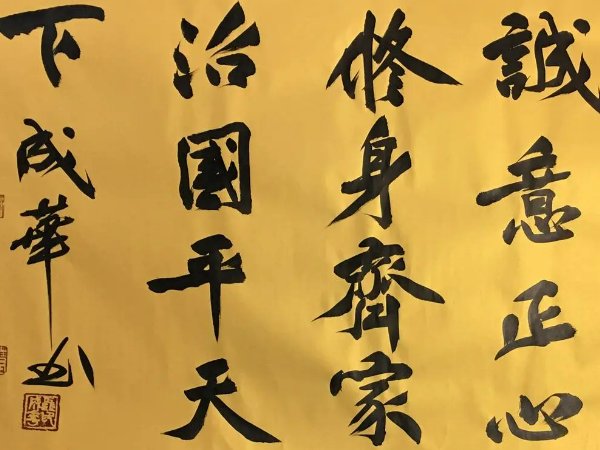 誠意正心
修身齊家
治國平天
下成華书